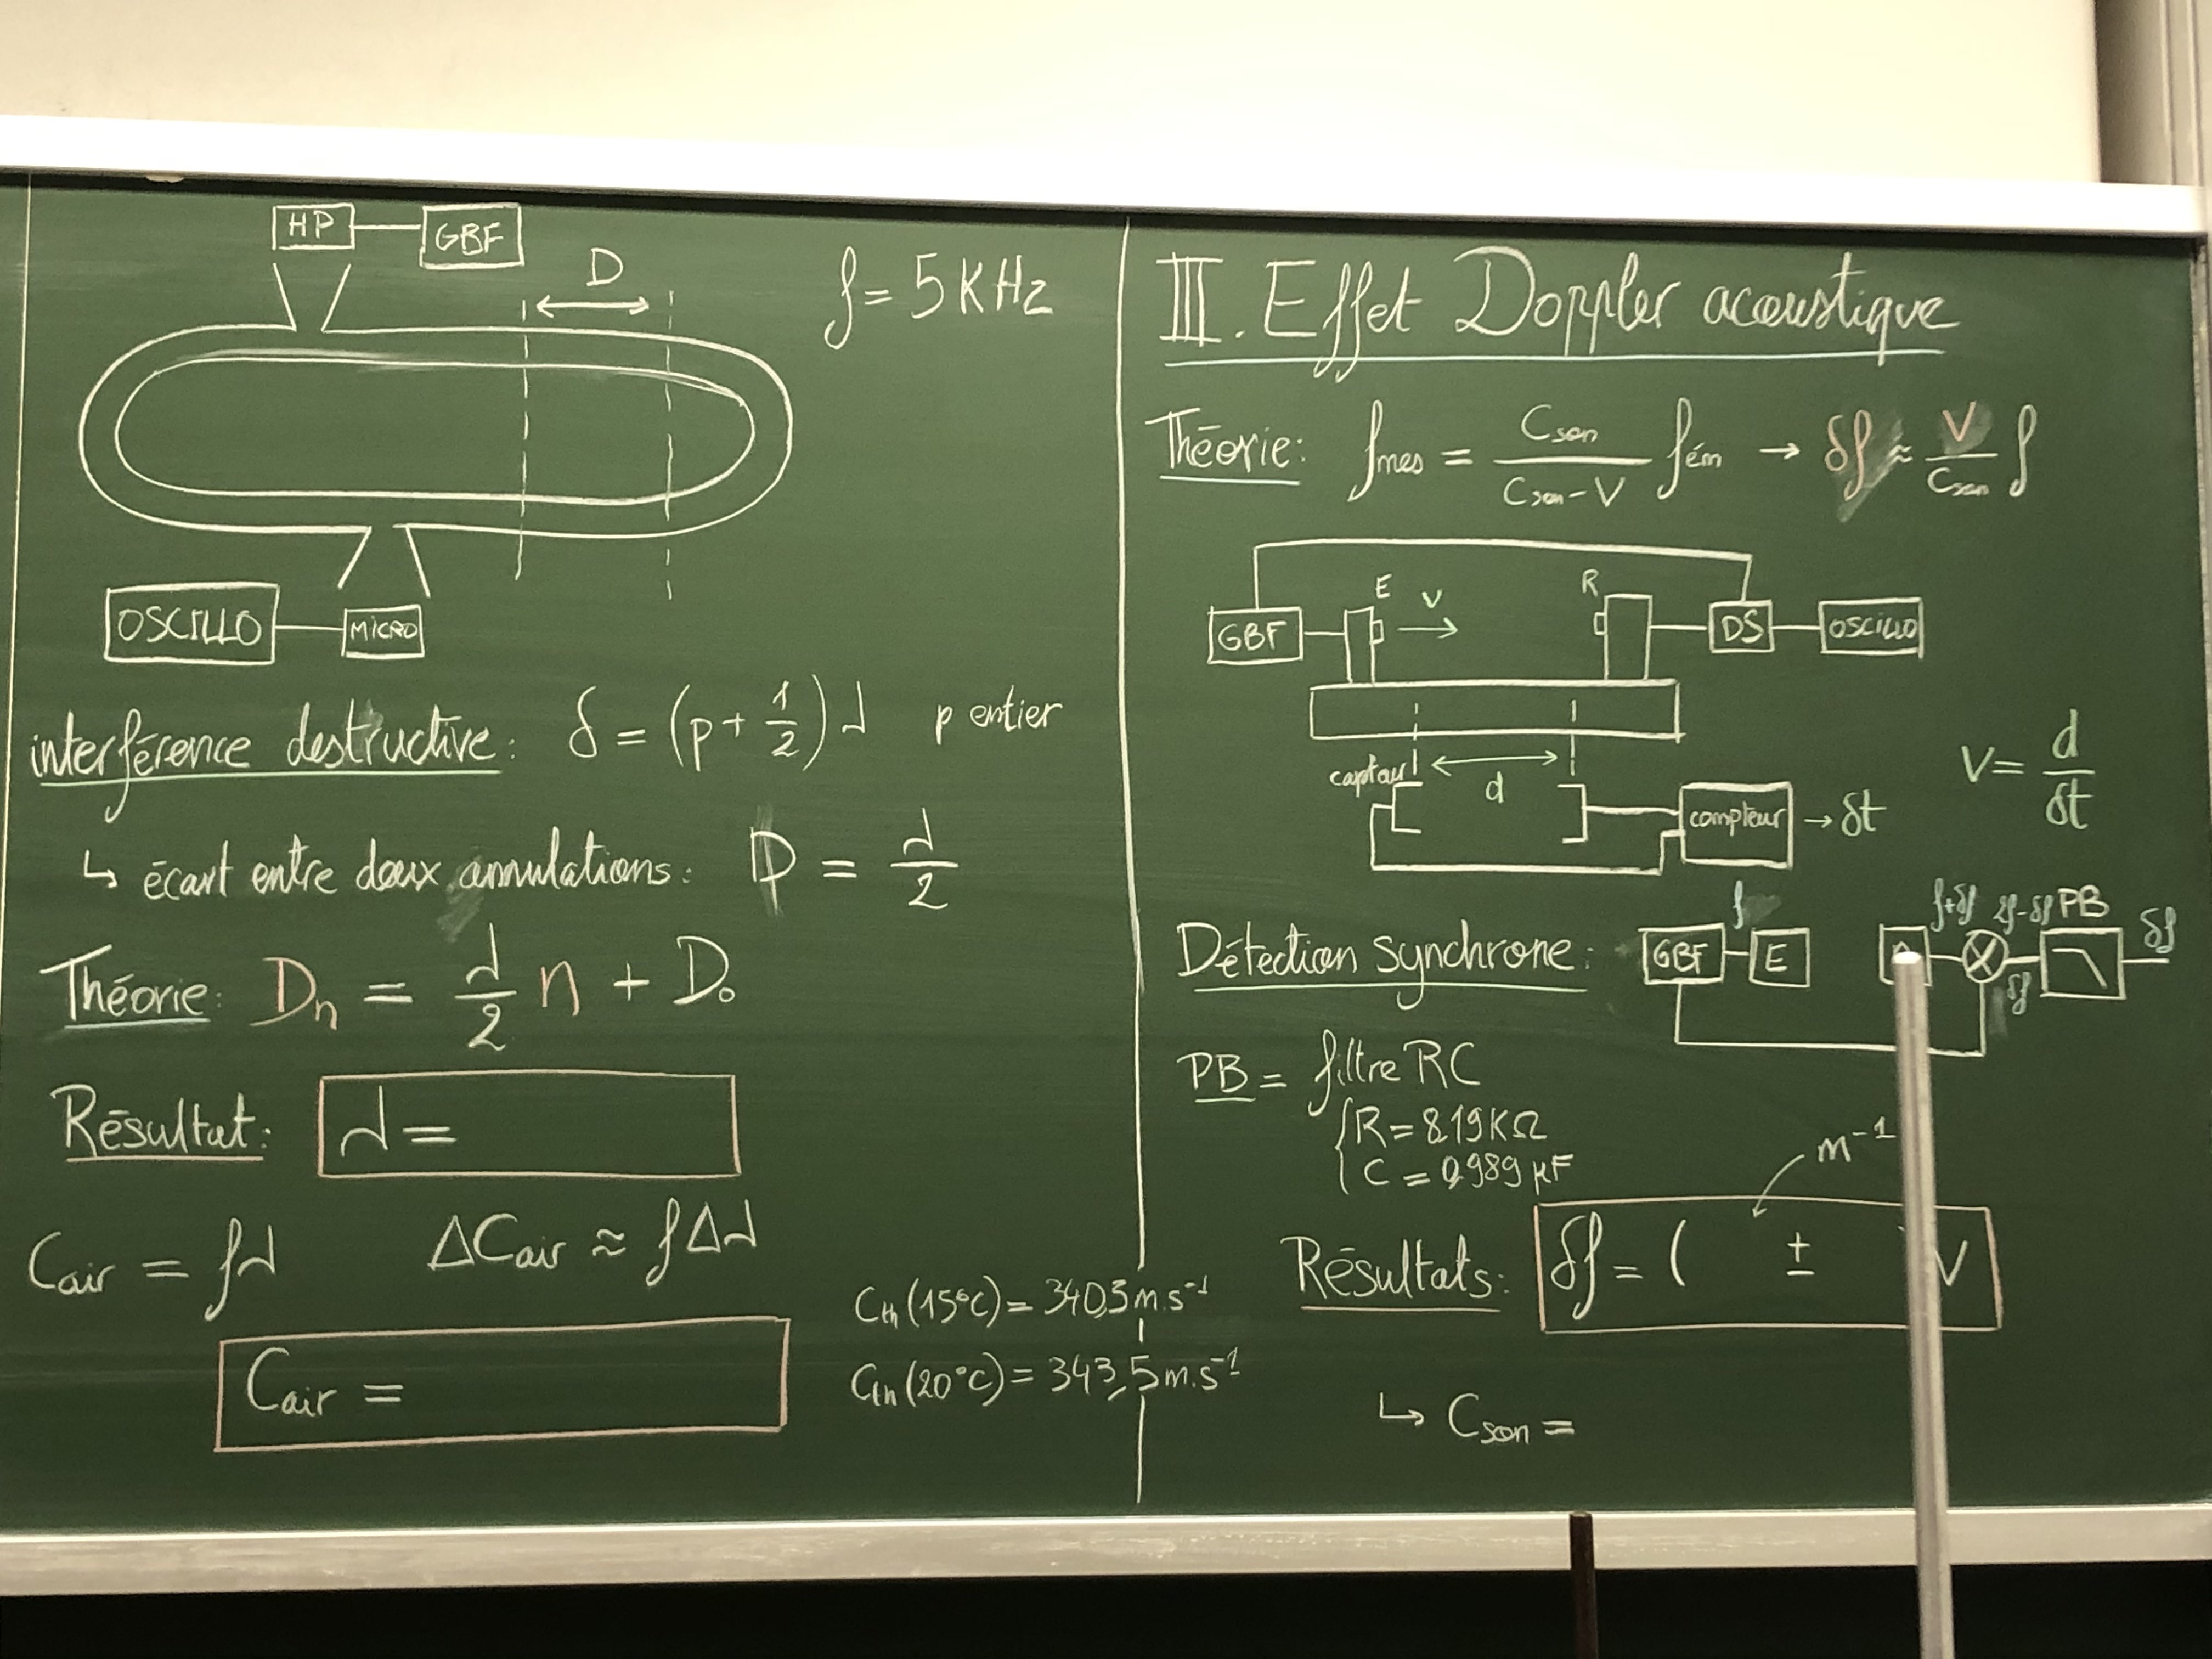 HP
GBF
D
f = 5 KHz
OSCILLO
MICRO
interférence destructive: δ = (p + 1/2) λ p entier
↳ écart entre deux annulations: D = λ/2
Théorie: Dn = λ/2 n + D₀
Résultat: λ =
Cair = fλ ΔCair ≈ fΔλ
Cair =
Cth (15°C) = 340,3 m.s⁻¹
Cth (20°C) = 343,5 m.s⁻¹
III. Effet Doppler acoustique
Théorie: fmes = Cson/(Cson - V) fém → δf ≈ V/Cson f
E
V
R
GBF
DS
OSCILLO
capteur
d
compteur → δt
V = d/δt
Détection synchrone:
GBF
f
E
f+δf
2f-δf
PB
δf
δf
PB = filtre RC
R = 8,19 KΩ
C = 0,989 μF
m⁻¹
Résultats: δf = ( ± ) V
↳ Cson =